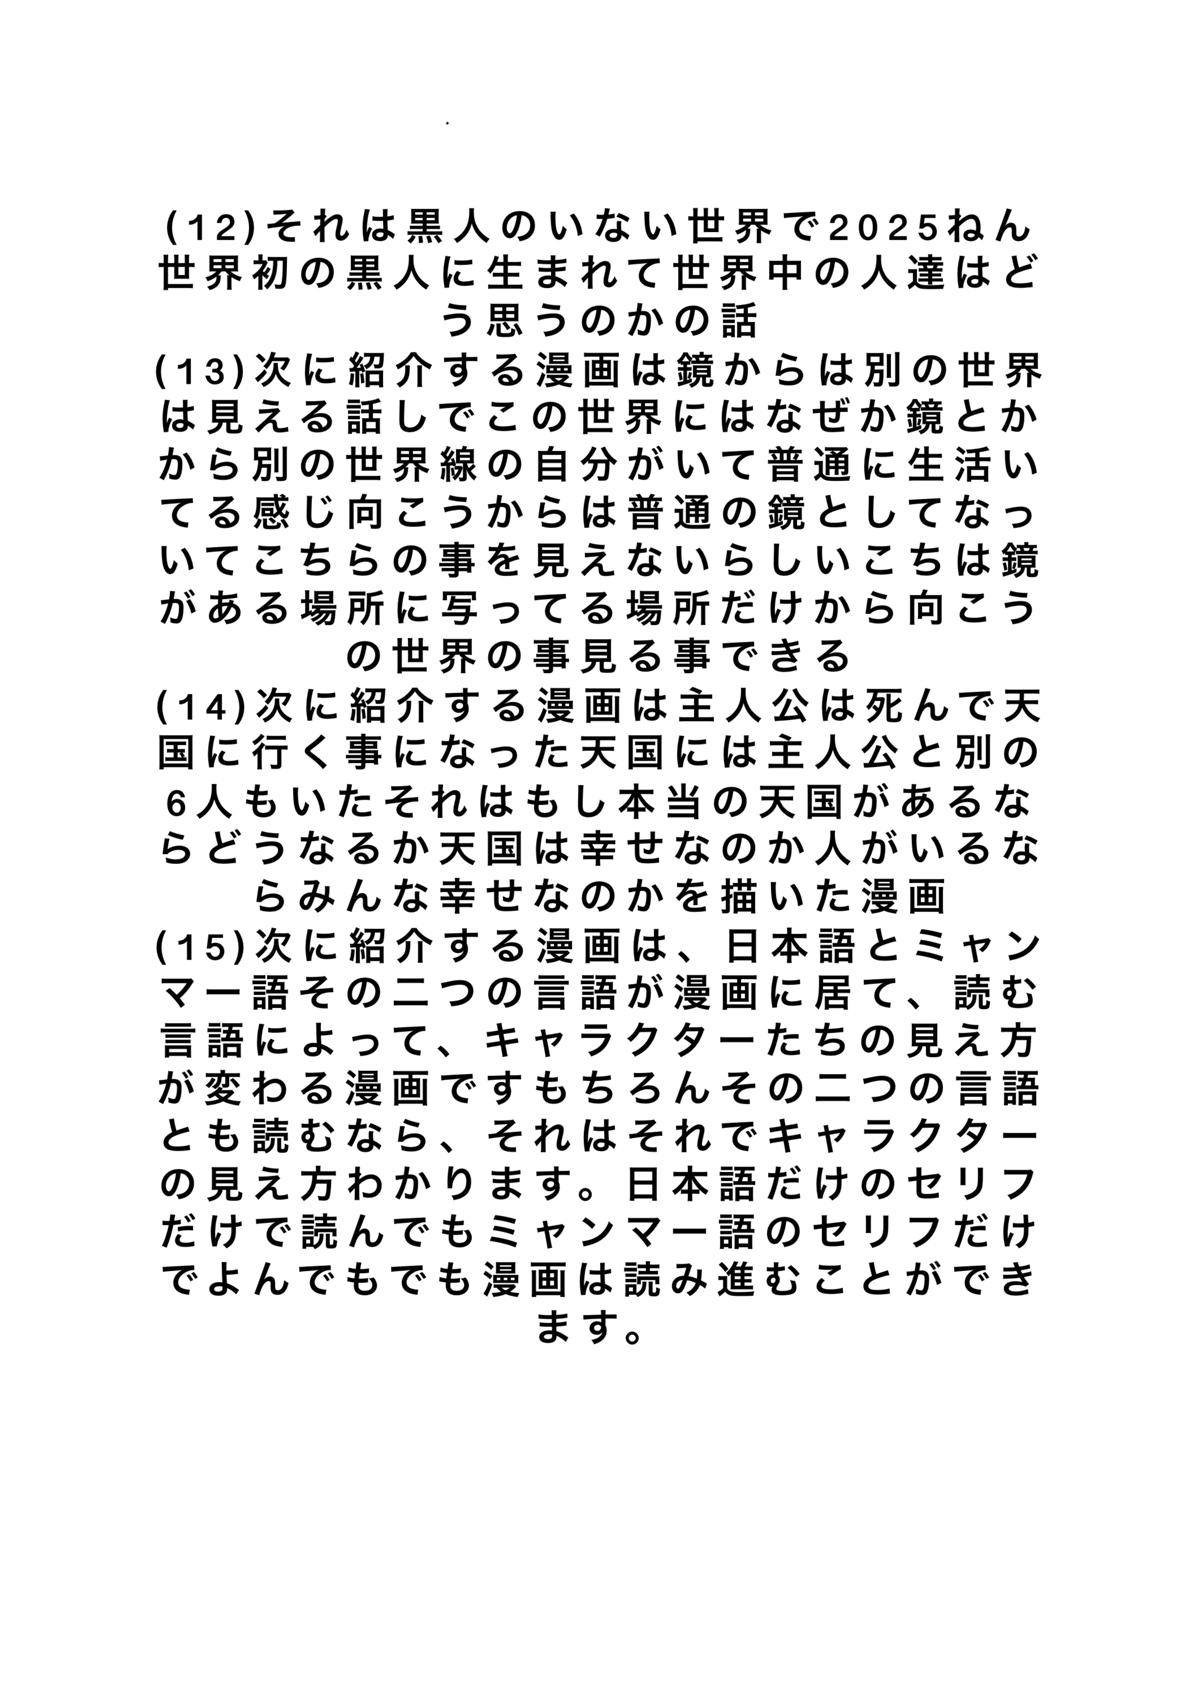 (12)それは黒人のいない世界で2025ねん
世界初の黒人に生まれて世界中の人達はど
う思うのかの話
(13)次に紹介する漫画は鏡からは別の世界
は見える話しでこの世界にはなぜか鏡とか
から別の世界線の自分がいて普通に生活い
てる感じ向こうからは普通の鏡としてなっ
いてこちらの事を見えないらしいこちは鏡
がある場所に写ってる場所だけから向こう
の世界の事見る事できる
(14)次に紹介する漫画は主人公は死んで天
国に行く事になった天国には主人公と別の
6人もいたそれはもし本当の天国があるな
らどうなるか天国は幸せなのか人がいるな
らみんな幸せなのかを描いた漫画
(15)次に紹介する漫画は、日本語とミャン
マー語その二つの言語が漫画に居て、読む
言語によって、キャラクターたちの見え方
が変わる漫画ですもちろんその二つの言語
とも読むなら、それはそれでキャラクター
の見え方わかります。日本語だけのセリフ
だけで読んでもミャンマー語のセリフだけ
でよんでもでも漫画は読み進むことができ
ます。